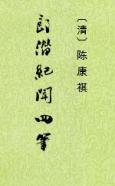 〔清〕陈康祺
郎潜紀聞四筆